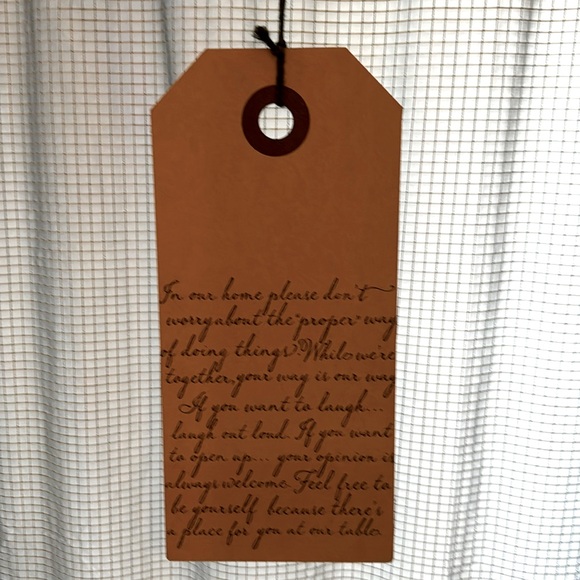 In our home please don't
worry about the "proper" way
of doing things. While we're
together, your way is our way
If you want to laugh...
laugh out loud. If you want
to open up... your opinion is
always welcome. Feel free to
be yourself because there's
a place for you at our table.